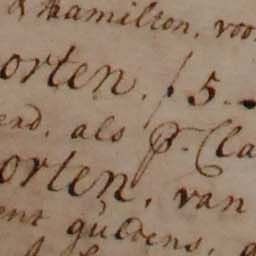 & Hamilton, voo
orten. f 5.—
end, als P. Cla
orten, van
ent guldens,